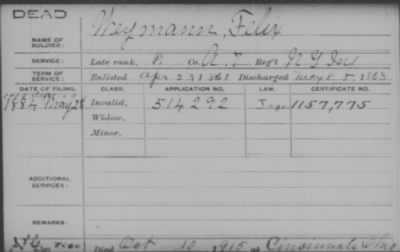 DEAD
NAME OF SOLDIER: Weymann, Felix
SERVICE: Late rank, P. Co. A. 7 Reg't N Y Inf
TERM OF SERVICE: Enlisted Apr 23 1861 Discharged May 8, 1863
DATE OF FILING. CLASS. APPLICATION NO. LAW. CERTIFICATE NO.
1884 May 28 Invalid, 514292 1157,775
Widow,
Minor,
ADDITIONAL SERVICES:
REMARKS:
Died Oct 10, 1915 at Cincinnati